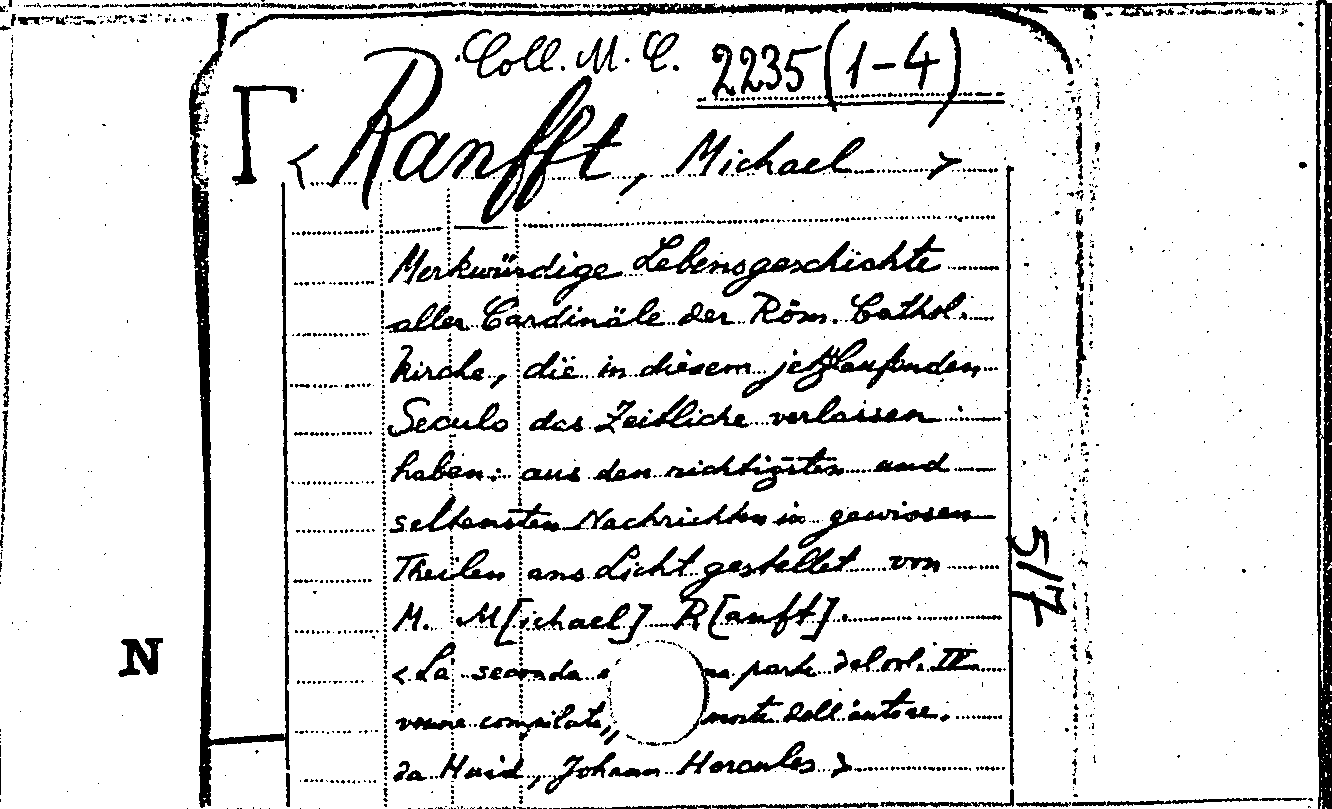 Coll. M. C. 2235 (1-4)
< Ranfft, Michael >
Merkwürdige Lebensgeschichte
aller Cardinäle der Röm. Cathol.
Kirche, die in diesem jetztlaufenden
Seculo das Zeitliche verlassen
haben: aus den richtigsten und
seltensten Nachrichten in gewissen
Theilen ans Licht gestellet von
M. M[ichael] R[anft].
517
N
< La seconda parte del vol. IV
venne compilata, morte dell'autore.
da Haid, Johann Hercules >